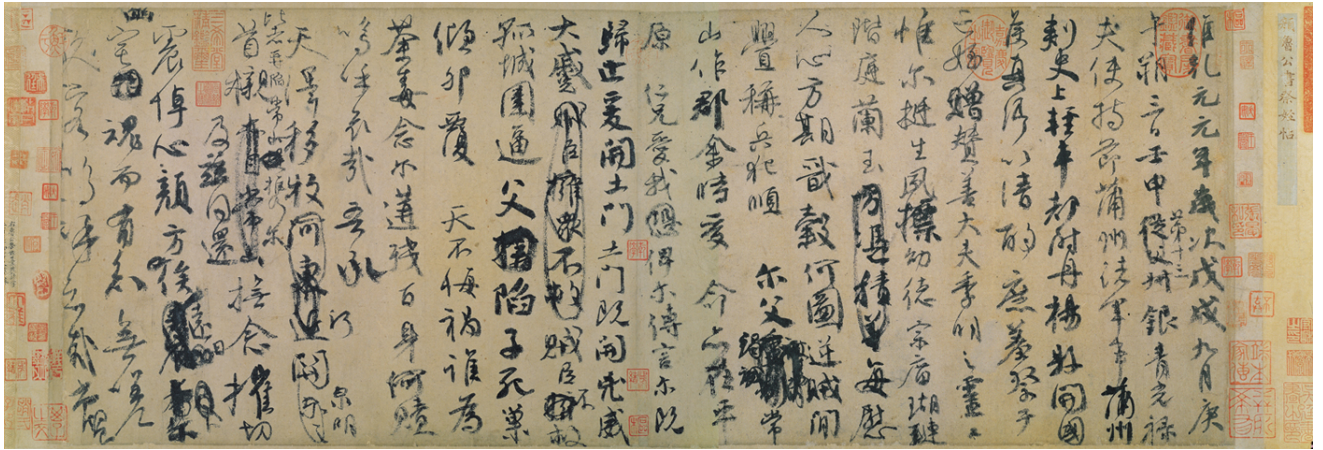 顏魯公書祭姪帖
維乾元元年歲次戊戌九月庚
午朔三日壬申第十三從父叔銀青光祿
夫使持節蒲州諸軍事蒲州
刺史上輕車都尉丹楊縣開國
侯真卿以清酌庶羞祭于
亡姪贈贊善大夫季明之靈曰
惟爾挺生夙標幼德宗廟瑚璉
階庭蘭玉方憑積善每慰
人心方期戩穀何圖逆賊閒
釁稱兵犯順爾父竭誠常
山作郡余時受命亦在平
原仁兄愛我俾爾傳言爾既
歸止爰開土門土門既開凶威
大蹙賊臣擁眾不救賊臣不救
孤城圍逼父陷子死巢
傾卵覆天不悔禍誰為
荼毒念爾遘殘百身何贖
嗚呼哀哉吾承
天澤移牧河東近關泉明
比者再陷常山攜爾
首櫬及茲同還撫念摧切
震悼心顏方俟遠日
宅魂而有知無嗟
久客嗚呼哀哉尚饗